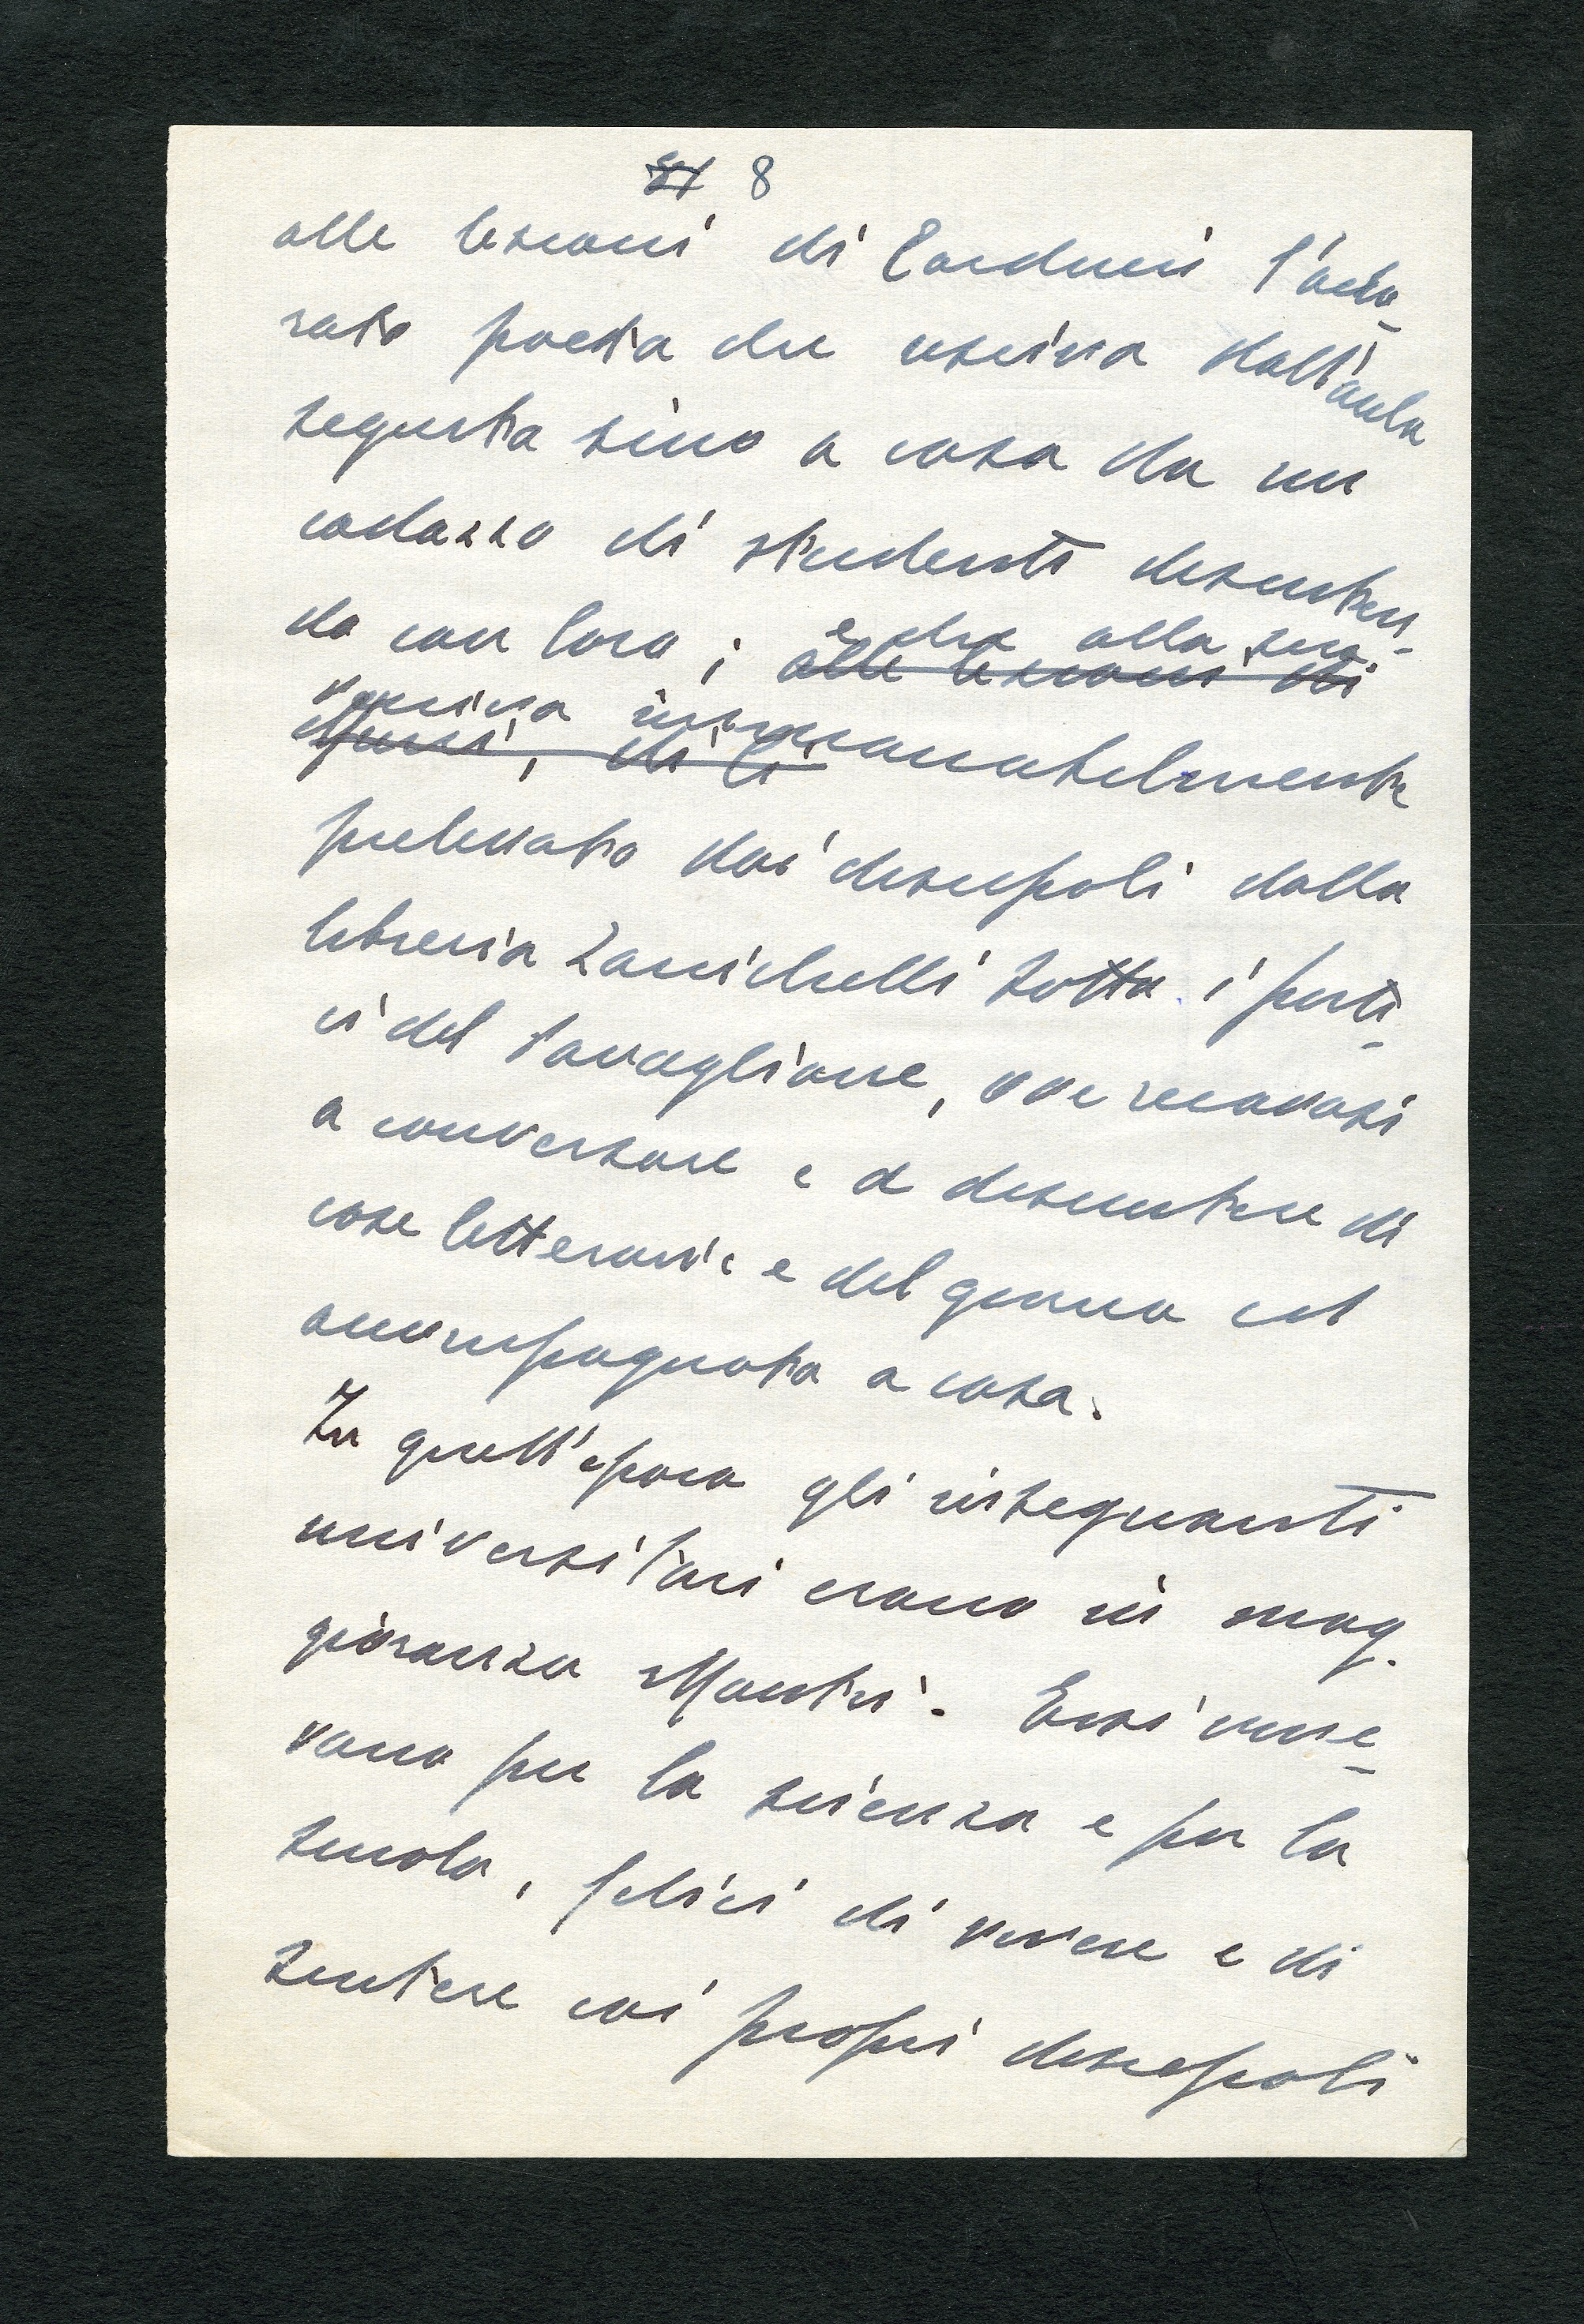 8
alle lezioni di Carducci l'ado-
rato poeta che usciva dall'aula
seguito sino a casa da un
codazzo di studenti discuten-
do con loro; e che alla sera
alle lezioni di
veniva immancabilmente
Murri, di Ci
prelevato dai discepoli dalla
libreria Zanichelli sotto i porti-
ci del Pavaglione, ove recavasi
a conversare e a discutere di
cose letterarie e del giorno ed
accompagnato a casa.
In quell'epoca gli insegnanti
universitari erano in mag-
gioranza Maestri. Essi vive-
vano per la scienza e per la
scuola, felici di vivere e di
sentire coi propri discepoli